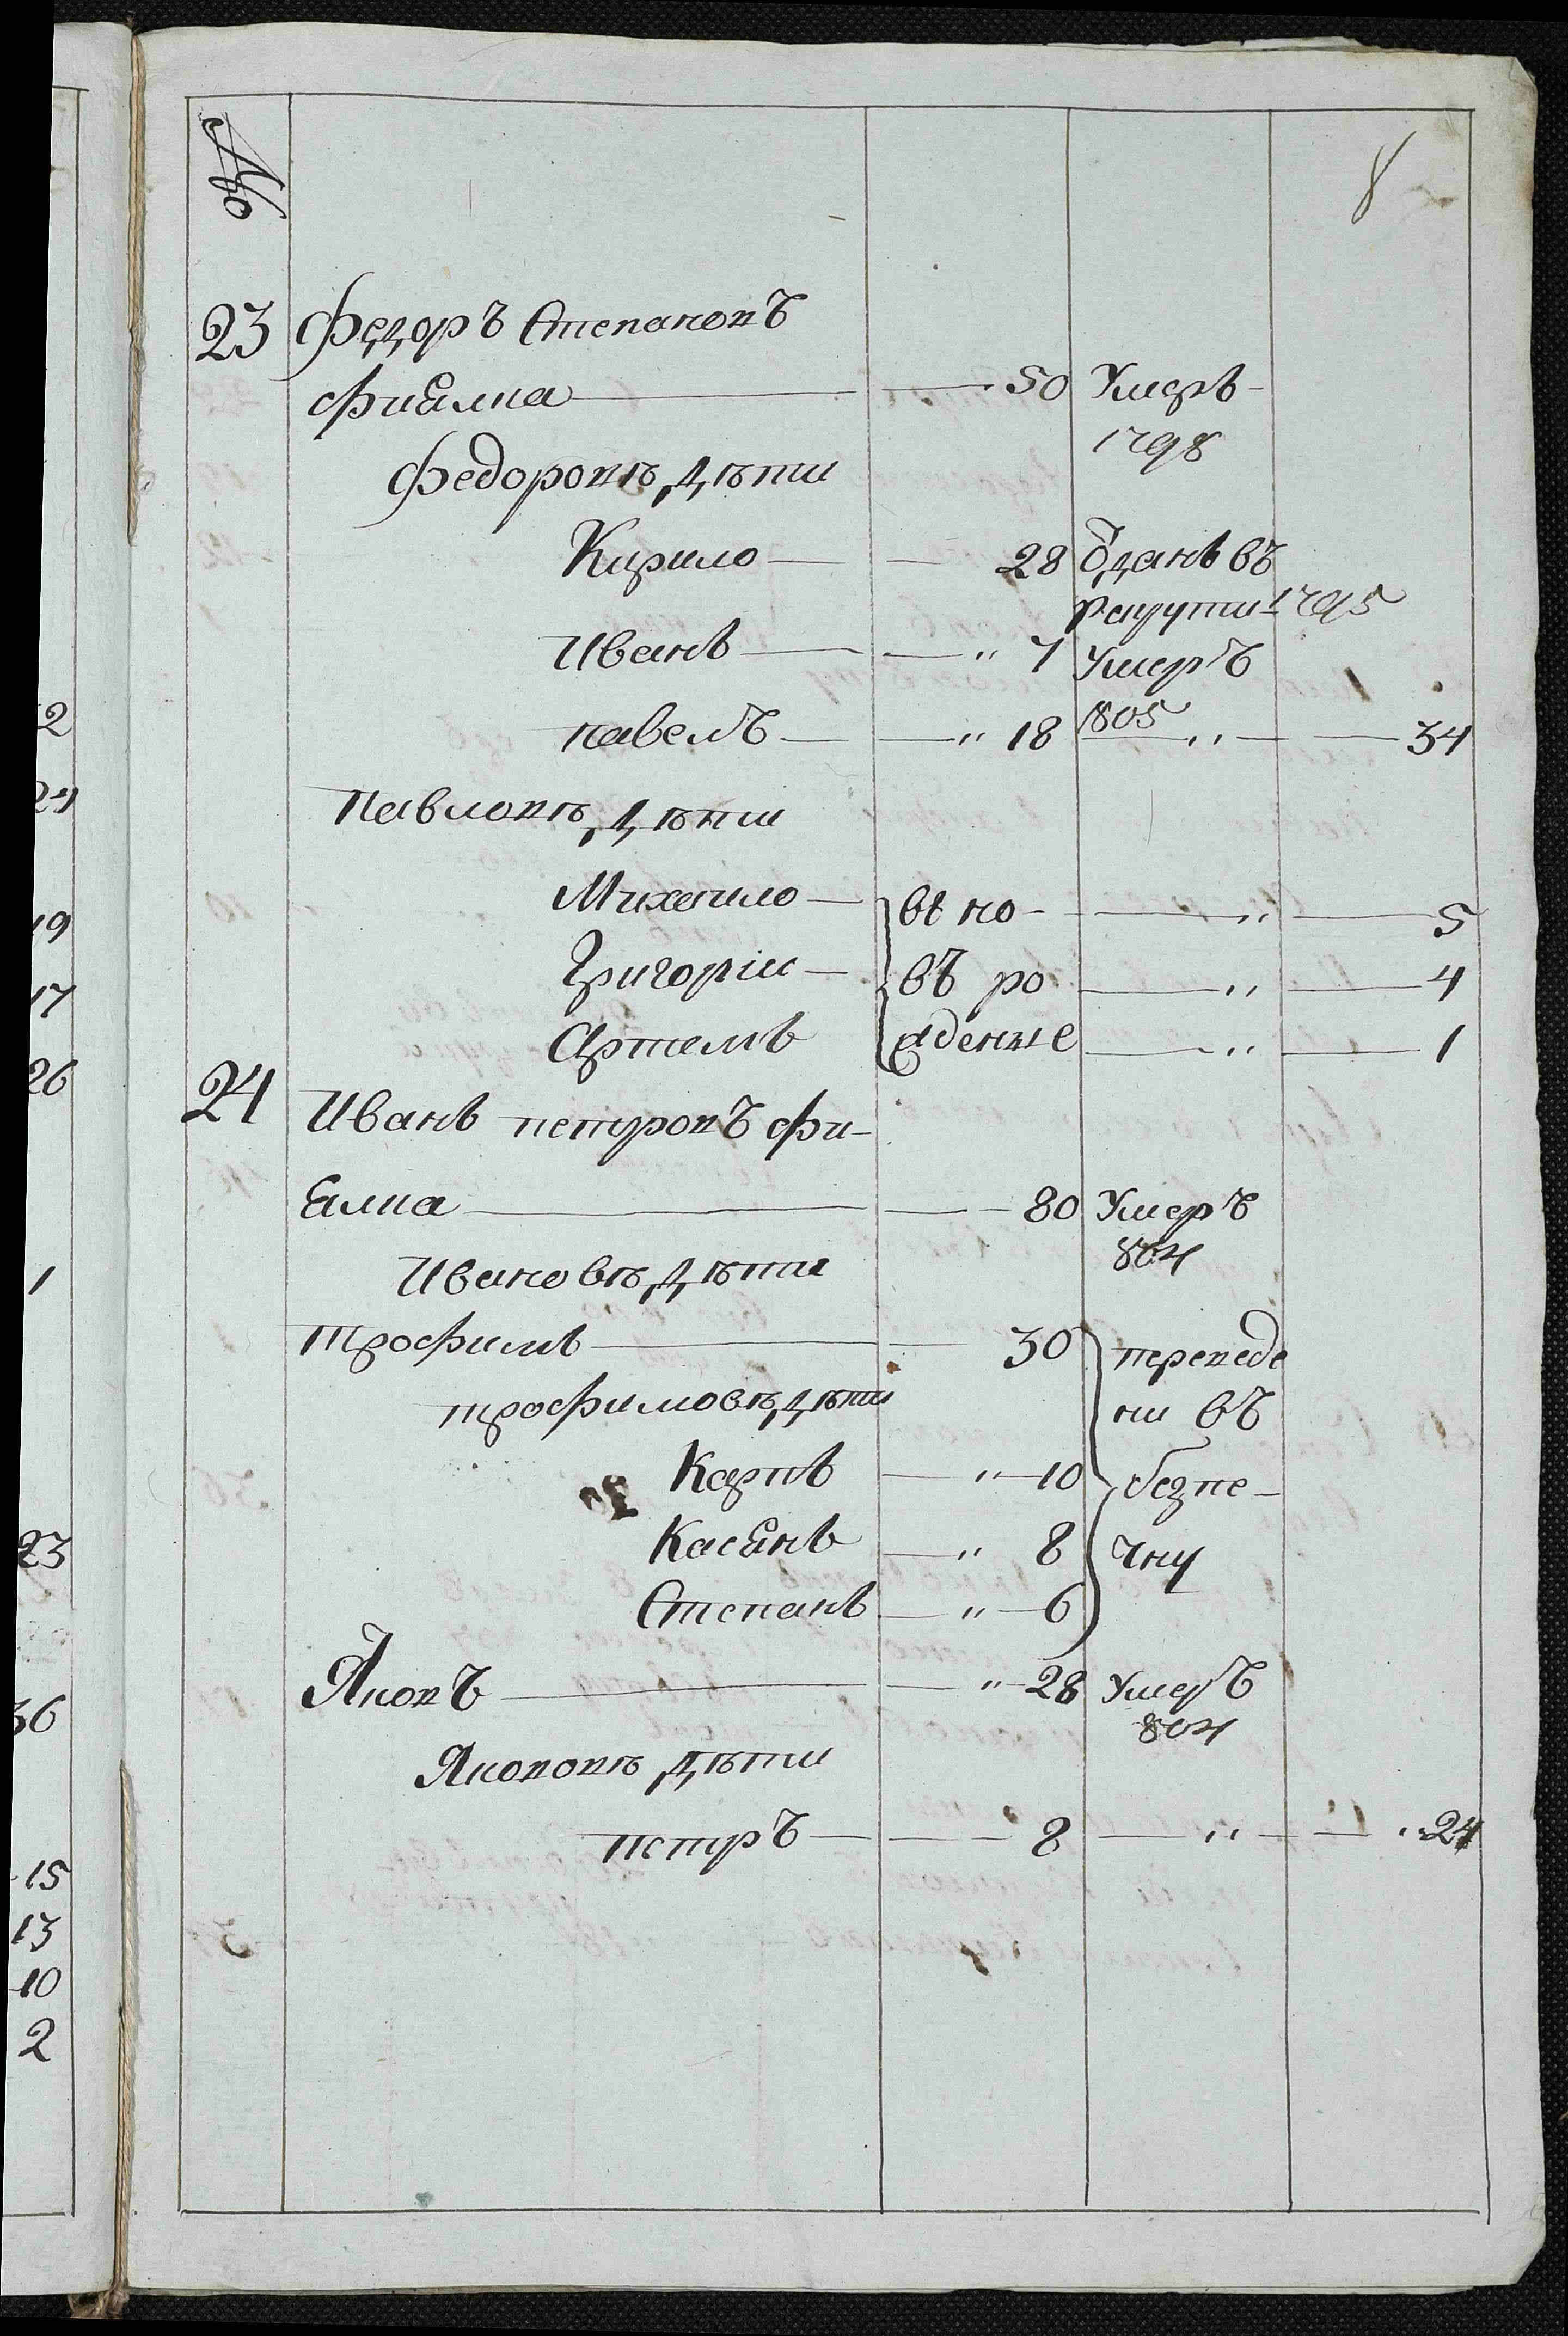 №
8
23 Федоръ Степановъ
Фиялка 50 Умеръ
1798
Федоровы дѣти
Кирило 28 Ѿданъ въ
рекрути 1795
Иванъ 7 Умеръ
1805
павелъ 18 34
Павловы дѣти
Михаило вѣ но- 5
Григоріи въ ро 4
Артемъ жденные 1
24 Иванъ петровъ Фи-
ялка 80 Умеръ
804
Ивановы дѣти
Трофимъ 30 переведе
трофимовы дѣти ни въ
Карпъ 10 безпе-
Касянъ 8 чну
Степанъ 6
Яковъ 28 Умеръ
804
Якововы дѣти
петръ 8 24
2
24
19
17
26
1
23
36
15
13
10
2